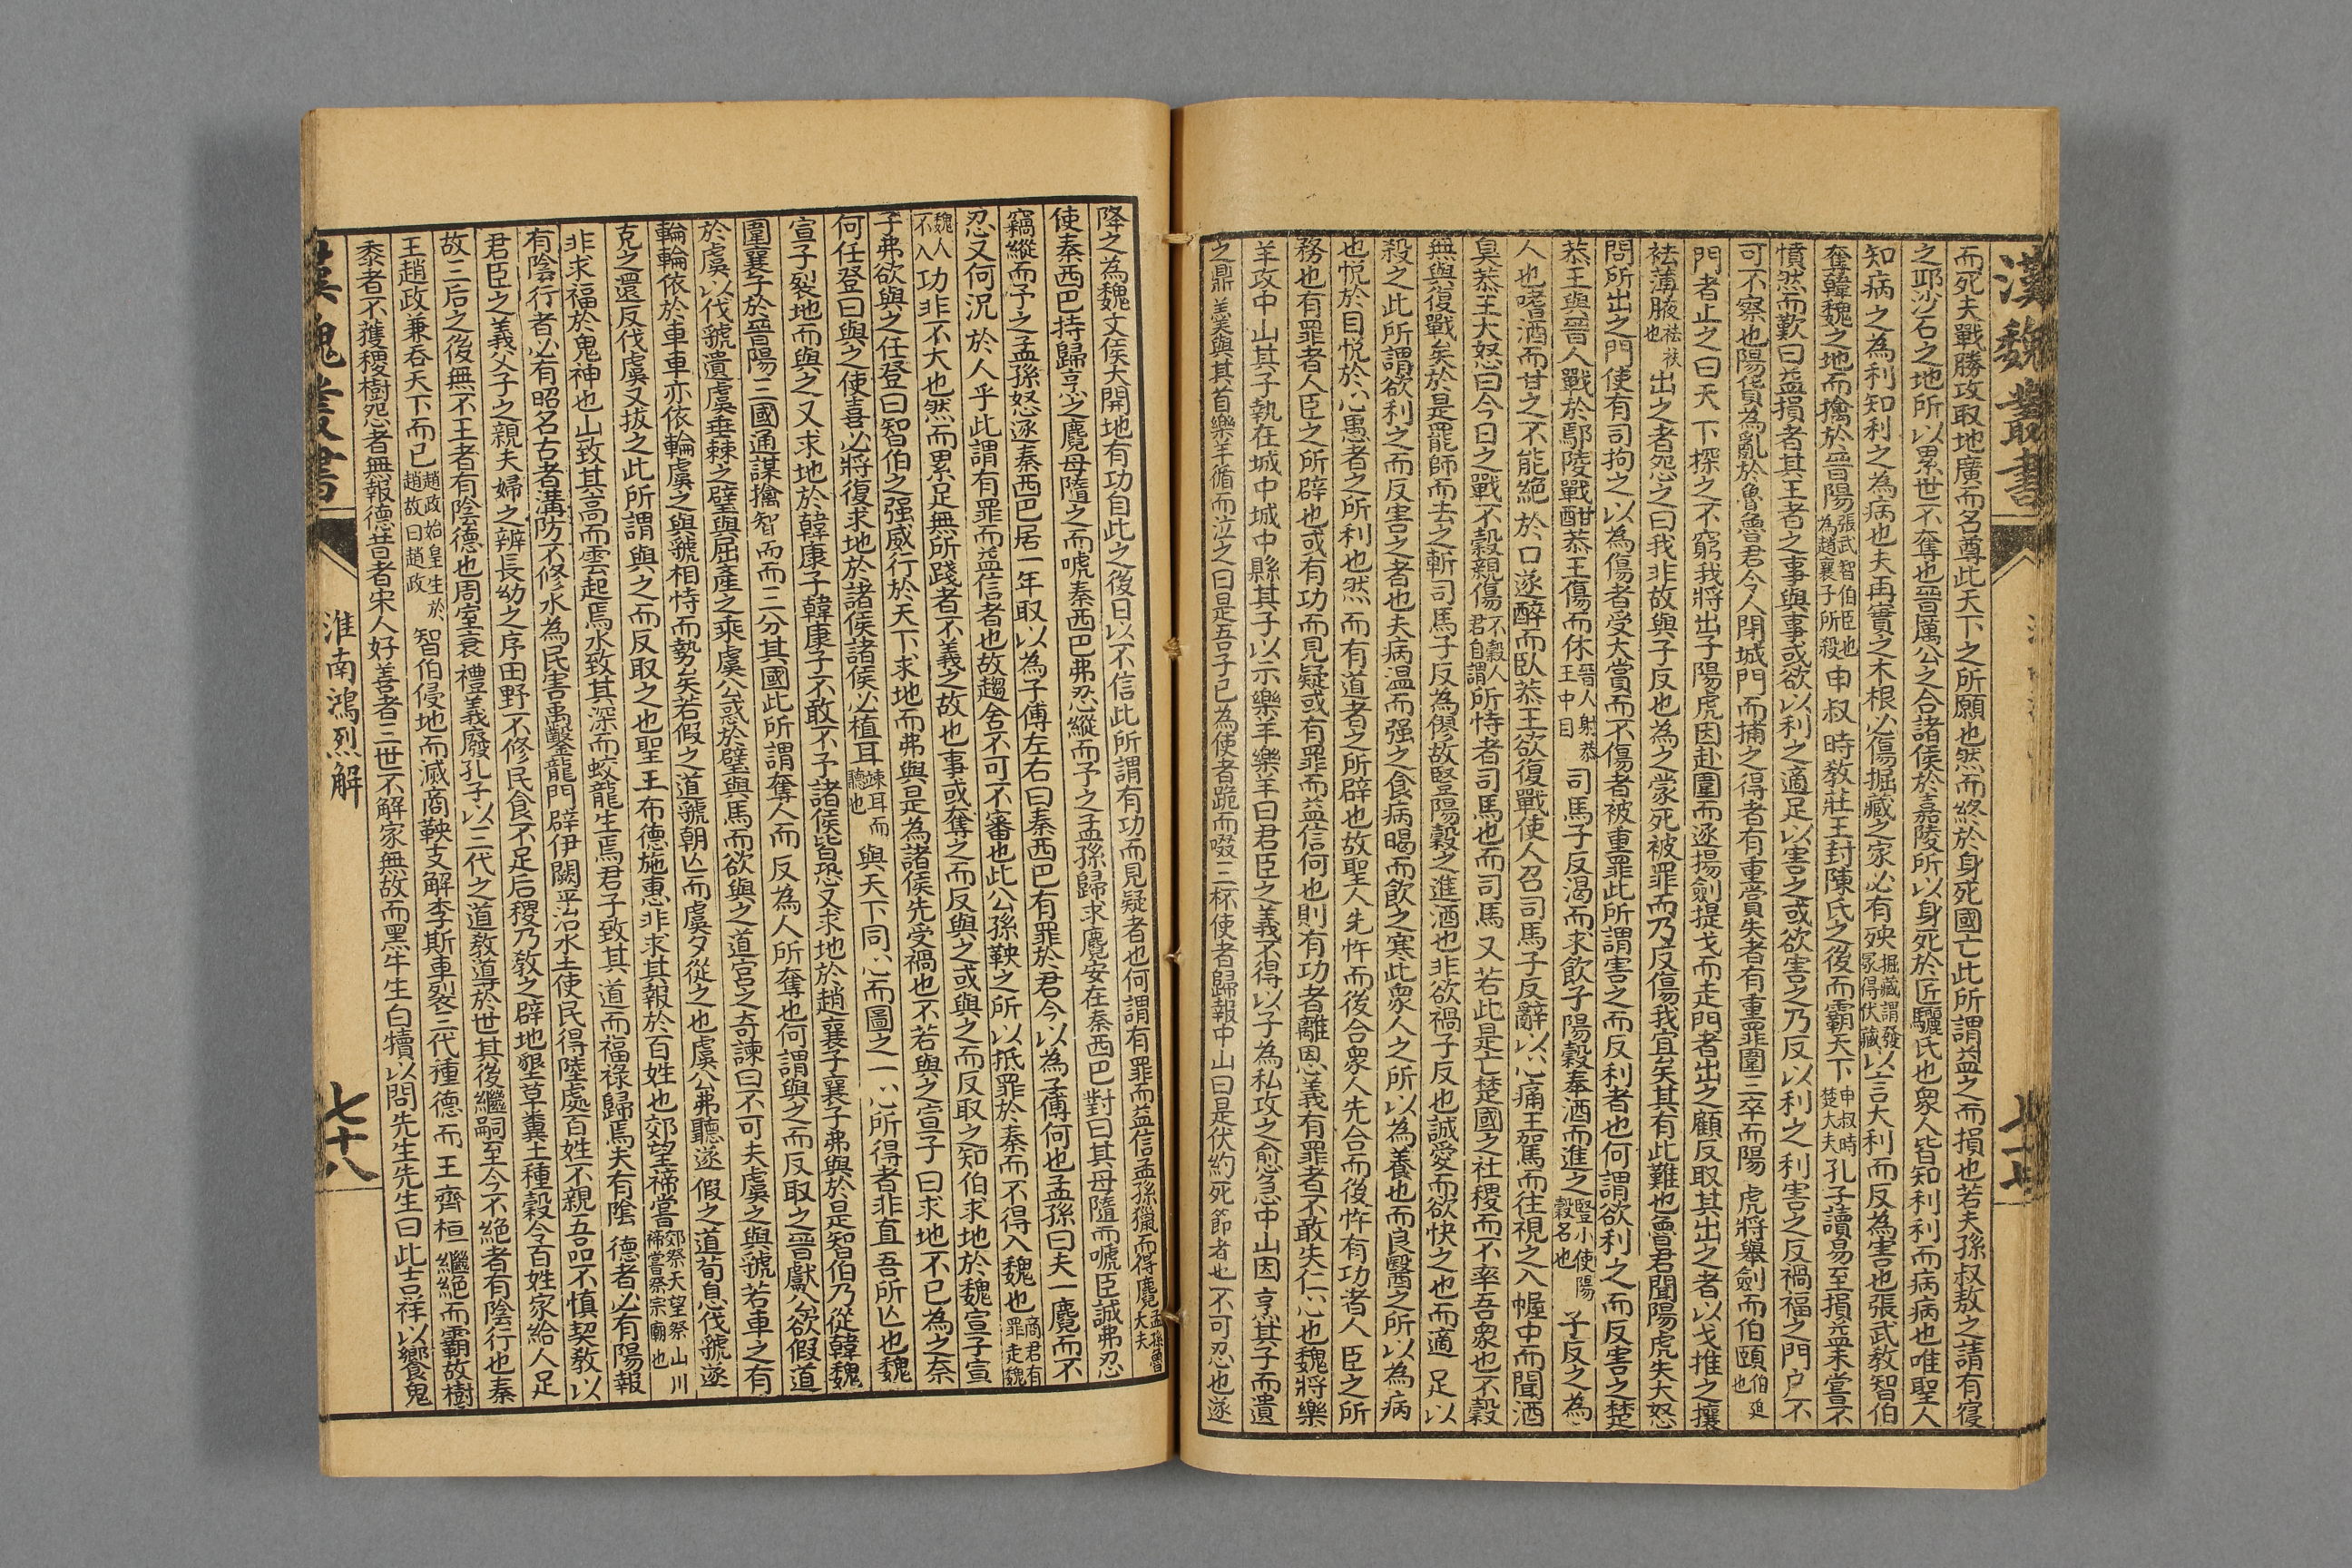 漢魏叢書
七十七
而死夫戰勝攻取地廣而名尊此天下之所願也然而終於身死國亡此所謂益之而損也若夫孫叔敖之請有寢
之耶沙石之地所以累世不奪也晉厲公之合諸侯於嘉陵所以身死於匠驪氏也衆人皆知利利而病病也唯聖人
知病之為利知利之為病也夫再實之木根必傷掘藏之家必有殃掘藏謂發冢得伏藏以言大利而反為害也張武教智伯
奪韓魏之地而擒於晉陽張武智伯臣也為趙襄子所殺申叔時教莊王封陳氏之後而霸天下申叔時楚大夫孔子讀易至損益未嘗不
憤然而歎曰益損者其王者之事與事或欲以利之適足以害之或欲害之乃反以利之利害之反禍福之門户不
可不察也陽貨為亂於魯魯君令人閉城門而捕之得者有重賞失者有重罪圍三卒而陽虎將舉劍而伯頤伯迫也
門者止之曰天下探之不窮我將出子陽虎因赴圍而逐揚劍提戈而走門者出之顧反取其出之者以戈推之攘
袪薄腋袪袂也出之者怨之曰我非故與子反也為之蒙死被罪而乃反傷我宜矣其有此難也魯君聞陽虎失大怒
問所出之門使有司拘之以為傷者受大賞而不傷者被重罪此所謂害之而反利者也何謂欲利之而反害之楚
恭王與晉人戰於鄢陵戰酣恭王傷而休晉人射恭王中目司馬子反渴而求飲子陽穀奉酒而進之豎小使陽穀名也子反之為
人也嗜酒而甘之不能絕於口遂醉而臥恭王欲復戰使人召司馬子反辭以心痛王駕而往視之入幄中而聞酒
臭恭王大怒曰今日之戰不穀親傷不穀人君自謂所恃者司馬也而司馬又若此是亡楚國之社稷而不率吾衆也不穀
無與復戰矣於是罷師而去之斬司馬子反為僇故豎陽穀之進酒也非欲禍子反也誠愛而欲快之也而適足以
殺之此所謂欲利之而反害之者也夫病温而强之食病暍而飲之寒此衆人之所以為養也而良醫之所以為病
也悦於目悦於心愚者之所利也然而有道者之所辟也故聖人先忤而後合衆人先合而後忤有功者人臣之所
務也有罪者人臣之所辟也或有功而見疑或有罪而益信何也則有功者離恩義有罪者不敢失仁心也魏將樂
羊攻中山其子執在城中城中縣其子以示樂羊樂羊曰君臣之義不得以子為私攻之愈急中山因烹其子而遺
之鼎羹與其首樂羊循而泣之曰是吾子已為使者跪而啜三杯使者歸報中山曰是伏約死節者也不可忍也遂
降之為魏文侯大開地有功自此之後日以不信此所謂有功而見疑者也何謂有罪而益信孟孫獵而得麑孟孫魯大夫
使秦西巴持歸烹之麑母隨之而嗁秦西巴弗忍縱而予之孟孫歸求麑安在秦西巴對曰其母隨而嗁臣誠弗忍
竊縱而予之孟孫怒逐秦西巴居一年取以為子傅左右曰秦西巴有罪於君今以為子傅何也孟孫曰夫一麑而不
忍又何況於人乎此謂有罪而益信者也故趨舍不可不審也此公孫鞅之所以抵罪於秦而不得入魏也商君有罪走魏
魏人不入功非不大也然而累足無所踐者不義之故也事或奪之而反與之或與之而反取之知伯求地於魏宣子宣
子弗欲與之任登曰智伯之强威行於天下求地而弗與是為諸侯先受禍也不若與之宣子曰求地不已為之奈
何任登曰與之使喜必將復求地於諸侯諸侯必植耳竦耳而聽也與天下同心而圖之一心所得者非直吾所亾也魏
宣子裂地而與之又求地於韓康子韓康子不敢不予諸侯皆恐又求地於趙襄子襄子弗與於是智伯乃從韓魏
圍襄子於晉陽三國通謀擒智而而三分其國此所謂奪人而反為人所奪也何謂與之而反取之晉獻公欲假道
於虞以伐虢遺虞垂棘之璧與屈產之乘虞公惑於璧與馬而欲與之道宮之奇諫曰不可夫虞之與虢若車之有
輪輪依於車車亦依輪虞之與虢相恃而勢矣若假之道虢朝亾而虞夕從之也虞公弗聽遂假之道荀息伐虢遂
克之還反伐虞又拔之此所謂與之而反取之也聖王布德施惠非求其報於百姓也郊望禘嘗郊祭天望祭山川禘嘗祭宗廟也
非求福於鬼神也山致其高而雲起焉水致其深而蛟龍生焉君子致其道而福祿歸焉夫有陰德者必有陽報
有陰行者必有昭名古者溝防不修水為民害禹鑿龍門辟伊闕平治水土使民得陸處百姓不親五品不慎契教以
君臣之義父子之親夫婦之辨長幼之序田野不修民食不足后稷乃教之辟地墾草糞土種穀令百姓家給人足
故三后之後無不王者有陰德也周室衰禮義廢孔子以三代之道教導於世其後繼嗣至今不絕者有陰行也秦
王趙政兼吞天下而已趙政始皇生於趙故曰趙政智伯侵地而滅商鞅支解李斯車裂三代種德而王齊桓繼絕而霸故樹
黍者不獲稷樹怨者無報德昔者宋人好善者三世不解家無故而黑牛生白犢以問先生先生曰此吉祥以饗鬼
漢魏叢書
淮南鴻烈解
七十八